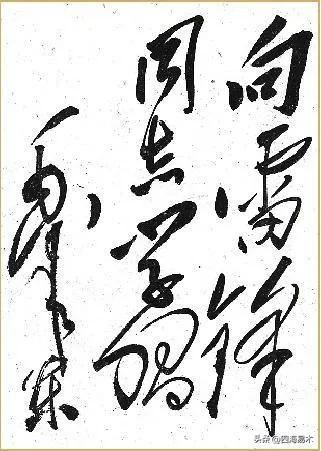 向雷锋
同志学习
毛泽东
头条@四海易木